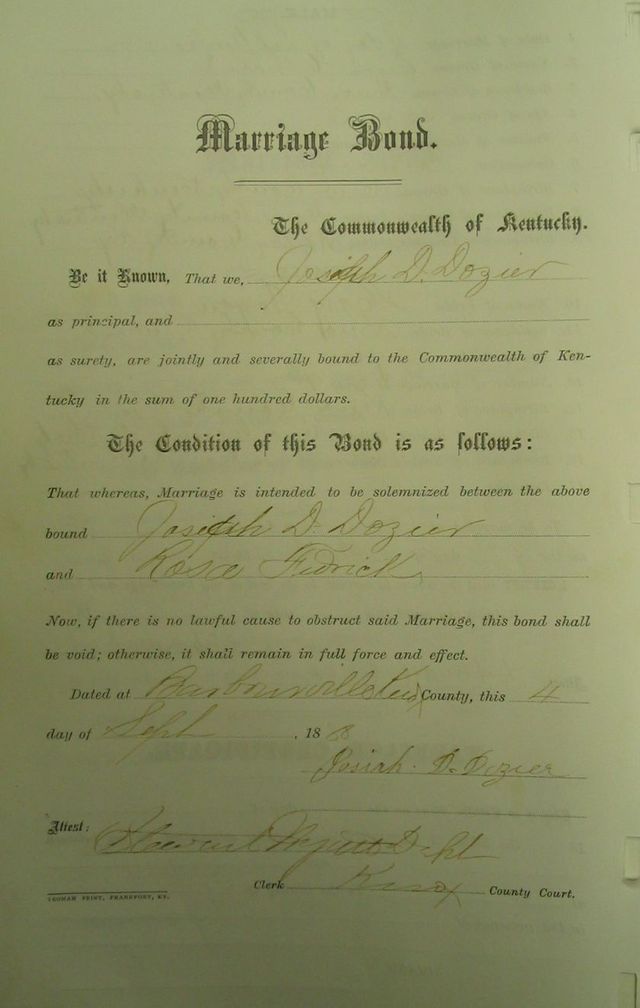 Marriage Bond.
The Commonwealth of Kentucky.
Be it Known, That we, Joseph D. Dozier
as principal, and
as surety, are jointly and severally bound to the Commonwealth of Ken-
tucky in the sum of one hundred dollars.
The Condition of this Bond is as follows:
That whereas, Marriage is intended to be solemnized between the above
bound Joseph D. Dozier
and Rosa Fedrick
Now, if there is no lawful cause to obstruct said Marriage, this bond shall
be void; otherwise, it shall remain in full force and effect.
Dated at Barbourville Knox County, this 4
day of Sept , 18 8
Josiah D. Dozier
Attest:
Clerk Knox County Court.
YEOMAN PRINT, FRANKFORT, KY.